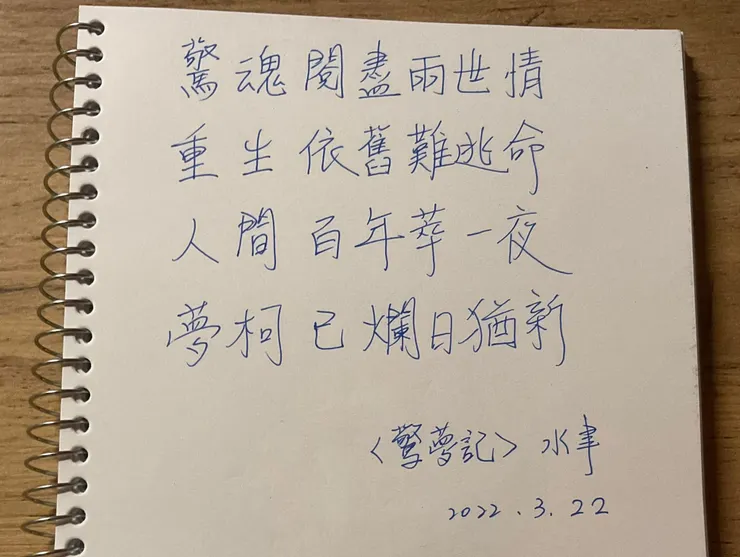 驚魂閱盡兩世情
重生依舊難逃命
人間百年萃一夜
夢柯已爛日猶新
〈驚夢記〉水聿
2022.3.22